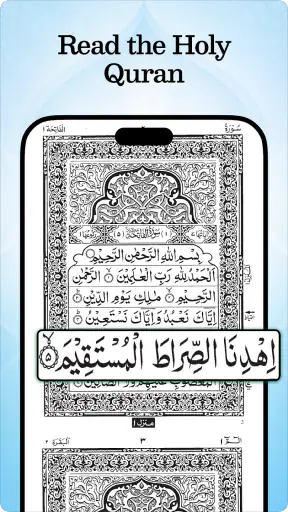 Read the Holy
Quran
الفاتحة ١
سورة
بِسْمِ اللهِ الرَّحْمٰنِ الرَّحِيْمِ
اَلْحَمْدُ لِلّٰهِ رَبِّ الْعٰلَمِيْنَ ۙ﴿١﴾ الرَّحْمٰنِ
الرَّحِيْمِ ۙ﴿٢﴾ مٰلِكِ يَوْمِ الدِّيْنِ ؕ﴿٣﴾
اِيَّاكَ نَعْبُدُ وَ اِيَّاكَ نَسْتَعِيْنُ ؕ﴿٤﴾
اِهْدِنَا الصِّرَاطَ الْمُسْتَقِيْمَ ۙ﴿٥﴾
الْمَغْضُوْبِ عَلَيْهِمْ وَلَا الضَّآلِّيْنَ
منزل ١
البقرة ٢
٣
الٓمّٓ ١